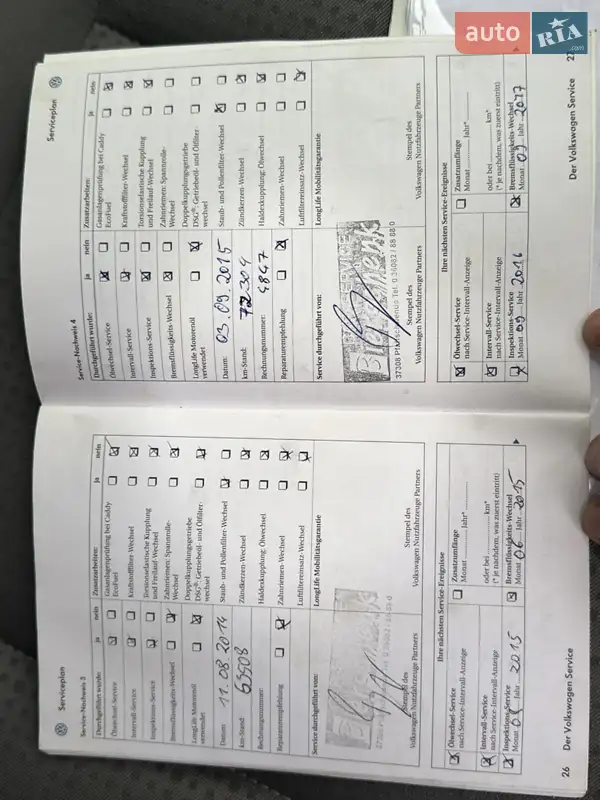 auto RIA.com
Serviceplan
Service-Nachweis 3
Durchgeführt wurde: ja nein
Ölwechsel-Service
Intervall-Service
Inspektions-Service
Bremsflüssigkeits-Wechsel
LongLife Motorenöl
verwendet
Datum: 11.08.2014
km-Stand: 63508
Rechnungsnummer:
Reparaturempfehlung
Service durchgeführt von:
Stempel des
Volkswagen Nutzfahrzeuge Partners
Zusatzarbeiten: ja nein
Gasanlagenprüfung bei Caddy
EcoFuel
Kraftstofffilter-Wechsel
Torsionselastische Kupplung
und Freilauf-Wechsel
Zahnriemen: Spannrolle-
Wechsel
Doppelkupplungsgetriebe
DSG®: Getriebeöl- und Ölfilter-
wechsel
Staub- und Pollenfilter-Wechsel
Zündkerzen-Wechsel
Haldexkupplung: Ölwechsel
Zahnriemen-Wechsel
Luftfiltereinsatz-Wechsel
LongLife Mobilitätsgarantie
Stempel des
Volkswagen Nutzfahrzeuge Partners
Ihre nächsten Service-Ereignisse
Ölwechsel-Service
nach Service-Intervall-Anzeige
Intervall-Service
nach Service-Intervall-Anzeige
Inspektions-Service
Monat Jahr 2015
Zusatzumfänge
Monat Jahr*
oder bei km*
(* je nachdem, was zuerst eintritt)
Bremsflüssigkeits-Wechsel
Monat 06 Jahr 2015
26 Der Volkswagen Service
Serviceplan
Service-Nachweis 4
Durchgeführt wurde: ja nein
Ölwechsel-Service
Intervall-Service
Inspektions-Service
Bremsflüssigkeits-Wechsel
LongLife Motorenöl
verwendet
Datum: 03.09.2015
km-Stand: 72304
Rechnungsnummer: 4847
Reparaturempfehlung
Service durchgeführt von:
Tel. 0 36082 / 88 88 0
Stempel des
Volkswagen Nutzfahrzeuge Partners
Zusatzarbeiten: ja nein
Gasanlagenprüfung bei Caddy
EcoFuel
Kraftstofffilter-Wechsel
Torsionselastische Kupplung
und Freilauf-Wechsel
Zahnriemen: Spannrolle-
Wechsel
Doppelkupplungsgetriebe
DSG®: Getriebeöl- und Ölfilter-
wechsel
Staub- und Pollenfilter-Wechsel
Zündkerzen-Wechsel
Haldexkupplung: Ölwechsel
Zahnriemen-Wechsel
Luftfiltereinsatz-Wechsel
LongLife Mobilitätsgarantie
Stempel des
Volkswagen Nutzfahrzeuge Partners
Ihre nächsten Service-Ereignisse
Ölwechsel-Service
nach Service-Intervall-Anzeige
Intervall-Service
nach Service-Intervall-Anzeige
Inspektions-Service
Monat 09 Jahr 2016
Zusatzumfänge
Monat Jahr*
oder bei km*
(* je nachdem, was zuerst eintritt)
Bremsflüssigkeits-Wechsel
Monat 09 Jahr 2017
Der Volkswagen Service